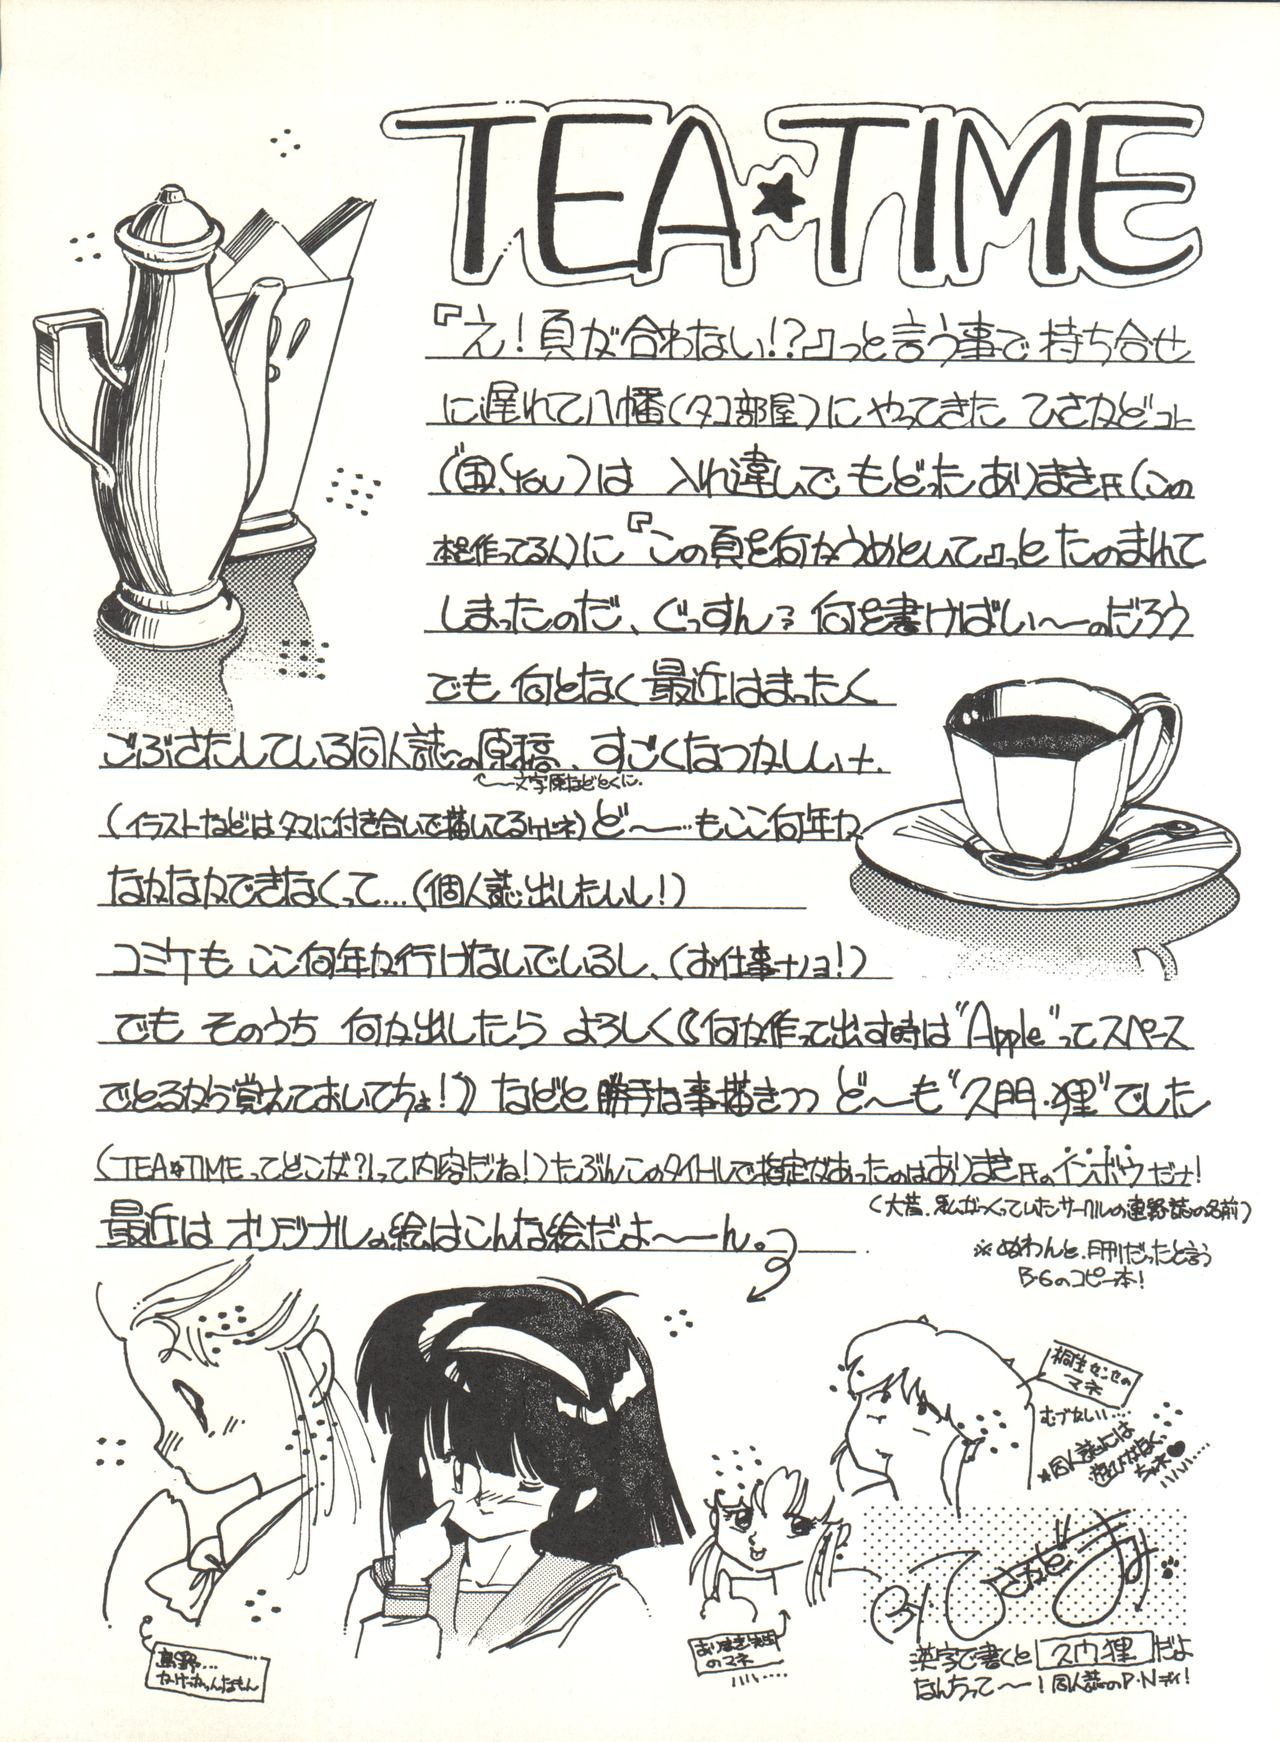 TEA★TIME
『え!頁が合わない!?』っと言う事で 持ち合せ
に遅れて八幡(タコ部屋)にやってきた ひさかどコト
は 入れ違いで もどったありまき氏(この
本を作ってる人)に『この頁を何かうめといて』っと たのまれて
しまったのだ、ぐっすん? 何を書けばい〜のだろう
でも 何となく最近はまったく
ごぶさたしている同人誌の原稿、すごくなつかしいナ。
文字原などとくに.
(イラストなどはタマに付き合いで描いてるけどネ)ど〜…もここ何年か
なかなかできなくって…(個人誌出したいし!)
コミケも ここ何年か行けないでいるし、(お仕事ナノヨ!)
でも そのうち 何か出したら よろしく《何か作って出す時は"Apple"ってスペース
でとるから覚えておいてちょ!》などと 勝手な事描きつつ ど〜も"久門・狸"でした
(TEA★TIMEってどこが?って内容だね!)たぶんこのタイトルで指定があったのはありまき氏のインボウだナ!
(大昔、私がつくっていたサークルの連絡誌の名前)
最近は オリジナルの絵はこんな絵だよ〜ん。
※ぬわんと、月刊だったと言う
B-6のコピー本!
桐生センセの
マネ
むづかしい…
★同人誌には
遊びがなく
ちゃネ♥
By ひさかど
漢字で書くと 久門 狸 だよ
なんちって〜! 同人誌のP・Nデイ!
ありまき
のマネ